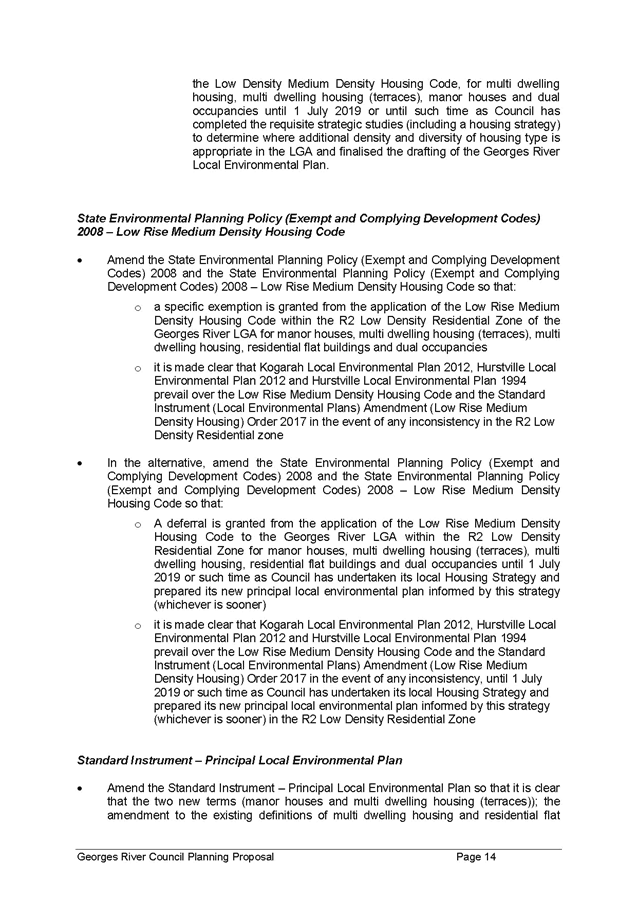 the Low Density Medium Density Housing Code, for multi dwelling
housing, multi dwelling housing (terraces), manor houses and dual
occupancies until 1 July 2019 or until such time as Council has
completed the requisite strategic studies (including a housing strategy)
to determine where additional density and diversity of housing type is
appropriate in the LGA and finalised the drafting of the Georges River
Local Environmental Plan.
State Environmental Planning Policy (Exempt and Complying Development Codes)
2008 – Low Rise Medium Density Housing Code
• Amend the State Environmental Planning Policy (Exempt and Complying Development
Codes) 2008 and the State Environmental Planning Policy (Exempt and Complying
Development Codes) 2008 – Low Rise Medium Density Housing Code so that:
o a specific exemption is granted from the application of the Low Rise Medium
Density Housing Code within the R2 Low Density Residential Zone of the
Georges River LGA for manor houses, multi dwelling housing (terraces), multi
dwelling housing, residential flat buildings and dual occupancies
o it is made clear that Kogarah Local Environmental Plan 2012, Hurstville Local
Environmental Plan 2012 and Hurstville Local Environmental Plan 1994
prevail over the Low Rise Medium Density Housing Code and the Standard
Instrument (Local Environmental Plans) Amendment (Low Rise Medium
Density Housing) Order 2017 in the event of any inconsistency in the R2 Low
Density Residential zone
• In the alternative, amend the State Environmental Planning Policy (Exempt and
Complying Development Codes) 2008 and the State Environmental Planning Policy
(Exempt and Complying Development Codes) 2008 – Low Rise Medium Density
Housing Code so that:
o A deferral is granted from the application of the Low Rise Medium Density
Housing Code to the Georges River LGA within the R2 Low Density
Residential Zone for manor houses, multi dwelling housing (terraces), multi
dwelling housing, residential flat buildings and dual occupancies until 1 July
2019 or such time as Council has undertaken its local Housing Strategy and
prepared its new principal local environmental plan informed by this strategy
(whichever is sooner)
o it is made clear that Kogarah Local Environmental Plan 2012, Hurstville Local
Environmental Plan 2012 and Hurstville Local Environmental Plan 1994
prevail over the Low Rise Medium Density Housing Code and the Standard
Instrument (Local Environmental Plans) Amendment (Low Rise Medium
Density Housing) Order 2017 in the event of any inconsistency, until 1 July
2019 or such time as Council has undertaken its local Housing Strategy and
prepared its new principal local environmental plan informed by this strategy
(whichever is sooner) in the R2 Low Density Residential Zone
Standard Instrument – Principal Local Environmental Plan
• Amend the Standard Instrument – Principal Local Environmental Plan so that it is clear
that the two new terms (manor houses and multi dwelling housing (terraces)); the
amendment to the existing definitions of multi dwelling housing and residential flat
Georges River Council Planning Proposal Page 14